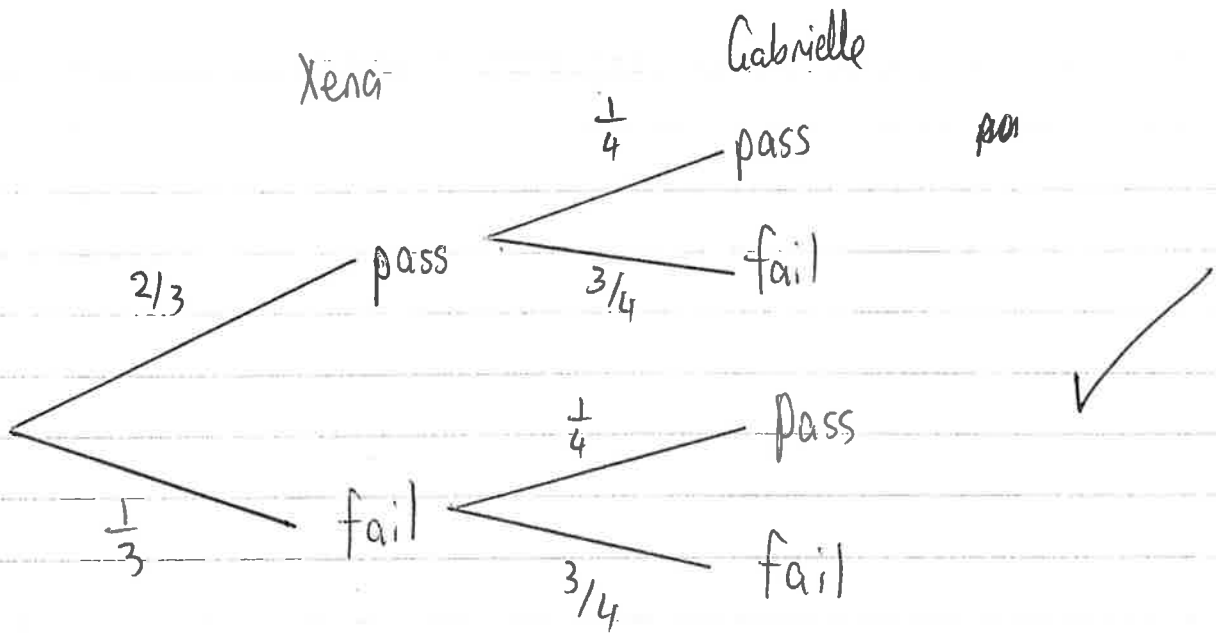 Xena
Gabrielle
1/4
pass
pa
2/3
pass
3/4
fail
1/4
Pass
1/3
fail
3/4
fail